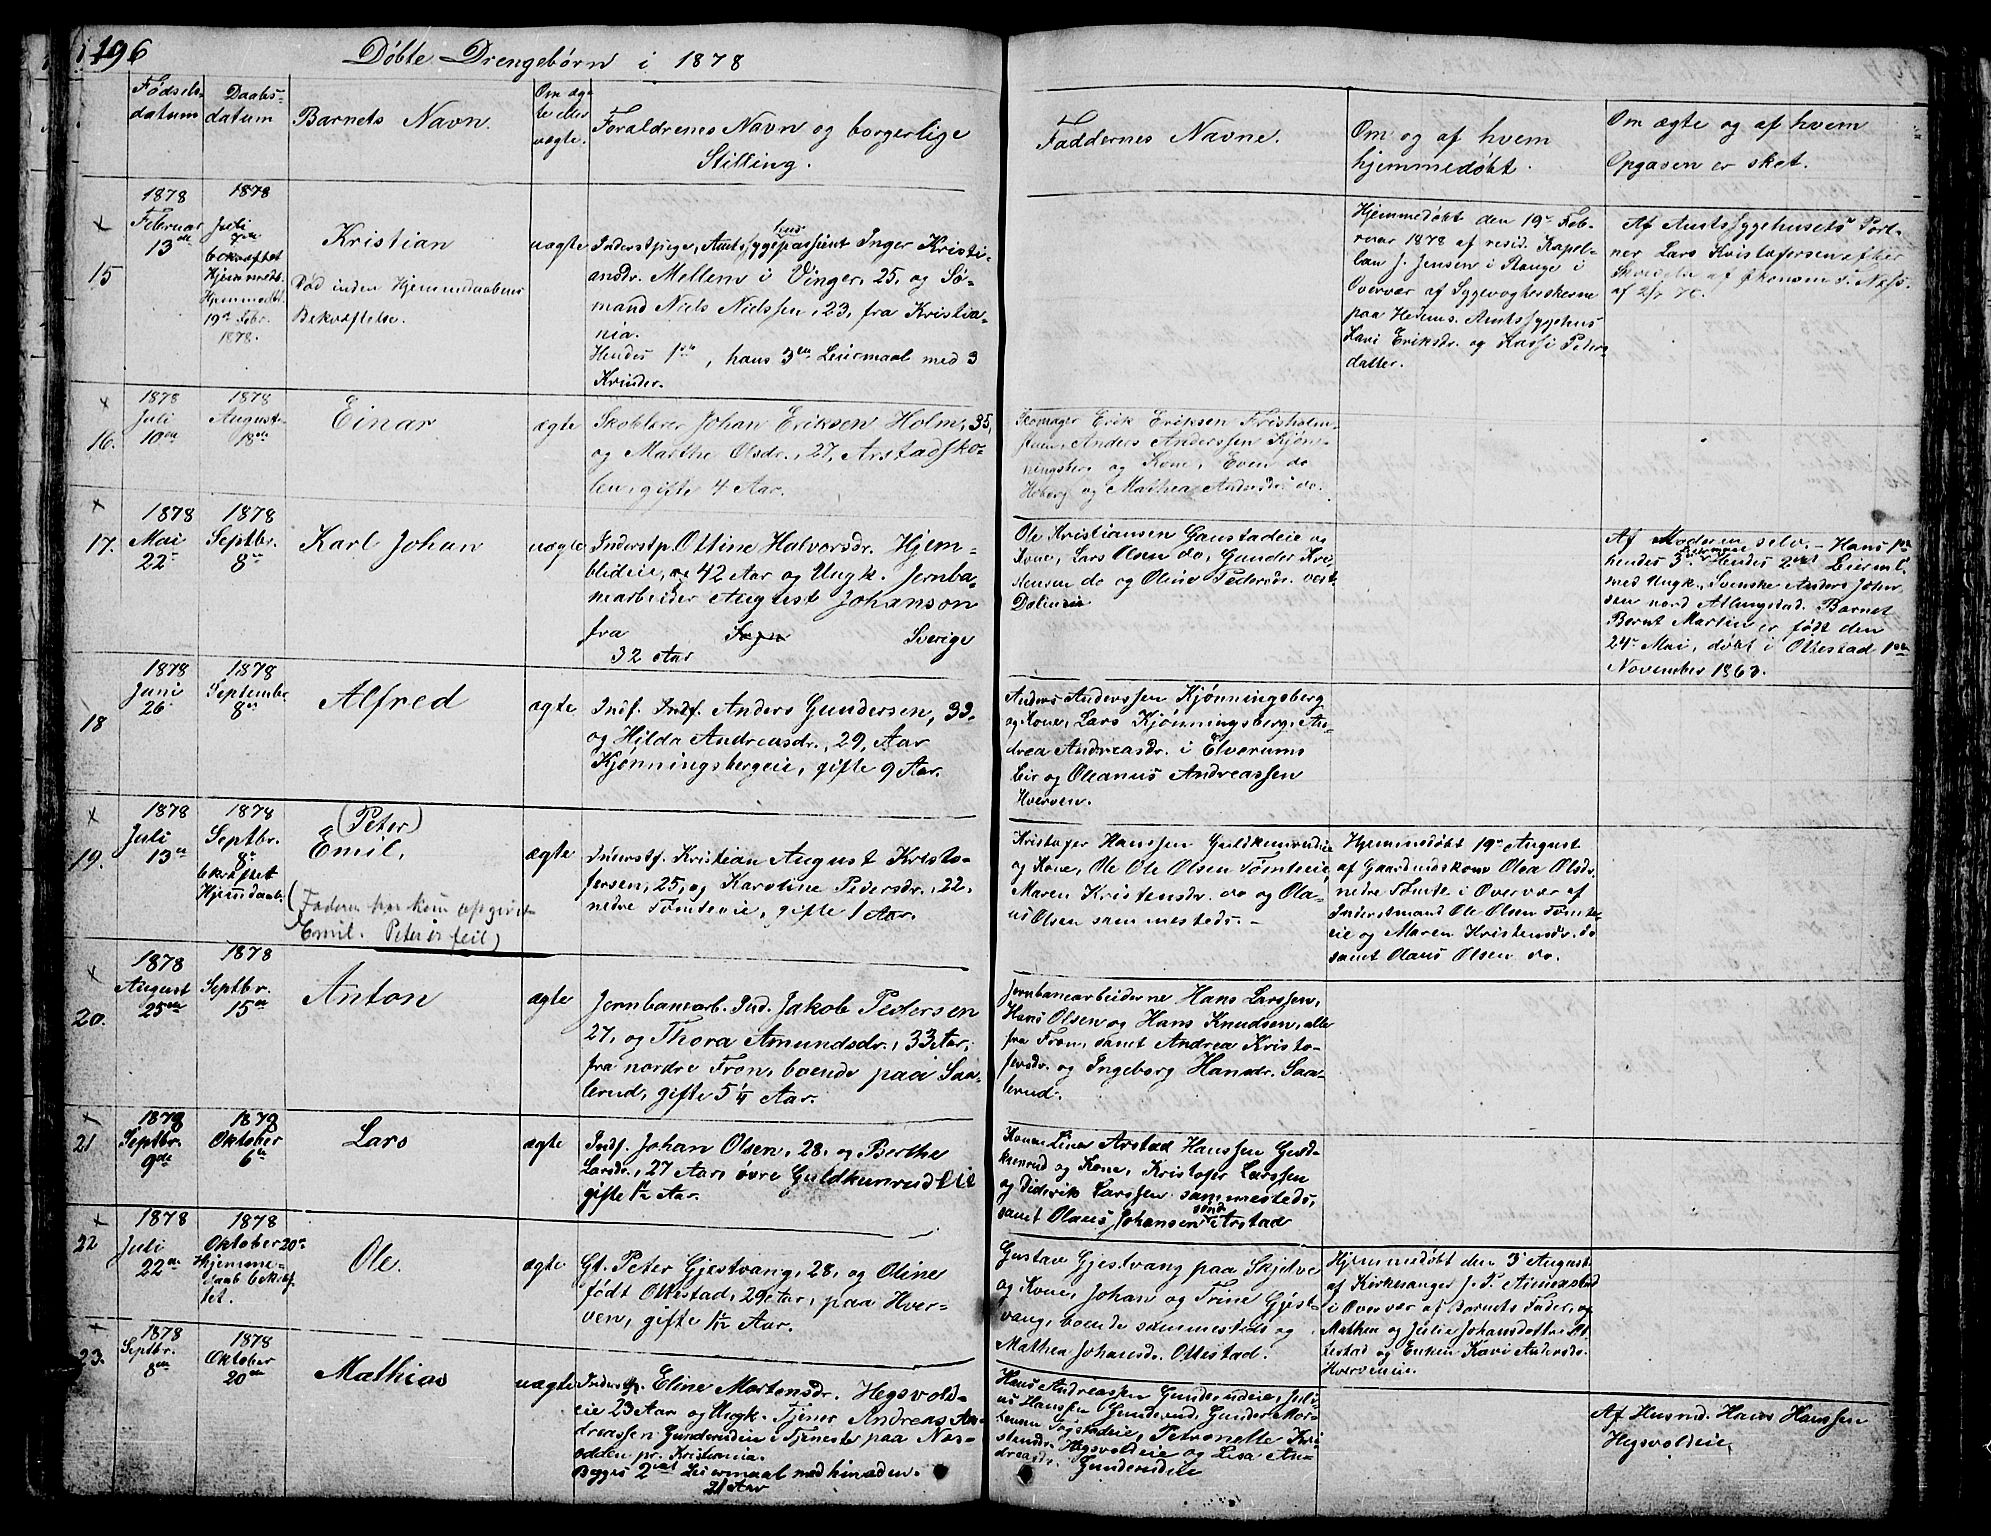 196
Døbte Drengebørn i 1878
Fødsels-
datum
Daabs-
datum
Barnets Navn.
Om æg-
te eller
uægte.
Foraldrenes Navn og borgerlige
Stilling.
Faddernes Navne.
Om og af hvem
hjemmedøbt.
Om ægte og af hvem
Opgaven er sket.
×
15
1878
Februar
13de
1878
Juli
bekræftet
Hjemmedb.
Hjemmedbt.
19de Febr.
1878.
Kristian
Død inden Hjemmedaabens
Bekræftelse.
uægte
Inderstpige, Amtssygehuspassient Inger Kristi-
ansdr. Mellem i Vinger, 25, og Sø-
mand Niels Nielssen, 23, fra Kristia-
nia.
Hendes 1ste, hans 3die Leiermaal med 3
Kvinder.
Hjemmedøbt den 19de Feb-
ruar 1878 af resid. Kapel-
lan J. Jensen i Stange i
Overvær af Sygevogterskerne
paa Hedems. Amtssygehus
Kari Eriksdr. og Kassi Peders-
datter.
Af Amtssygehusets Port-
ner Lars Kristofersen efter
Skrivelse af Økonom S. Næss
×
16.
1878
Juli
10en
1878
August
18de
Einar
ægte
Skolelærer Johan Eriksen Holm, 35,
og Marthe Olsdr., 27, Arstadsko-
len, gifte 4 Aar.
Skomager Erik Eriksen Frisholm-
Anders Anderssen Kjøn-
ningsberg og Kone, Even do
Hoberg og Mathea Andersdr do.
×
17.
1878
Mai
22de
1878
Septbr.
8de
Karl Johan
uægte
Inderstp. Ottine Halvorsdr. Hjem-
blideie, 42 Aar og Ungk. Jernba-
narbeider August Johanson
fra Sverige
32 Aar
Ole Kristiansen Gaustadeie og
Kone, Lars Olsen do, Gunder Kri-
stensen do og Oline Pedersdr. vest.
Dalineie
Af Moderen selv. - Hans 1ste
hendes 3. Hendes 2det Leierm.
med Ungk. Svenske Anders John-
sen nord Allingstad. Barnet
Bernt Martin er født den
24de Mai, døbt i Ottestad 1ste
November 1863.
18
1878
Juni
26
1878
Septembr
8de
Alfred
ægte
Indf. Indf. Anders Gundersen, 33,
og Hilda Andreasdr., 29, Aar
Kjønningsbergeie, gifte 9 Aar.
Anders Anderssen Kjønningsberg
og Kone, Lars Kjønningsberg, An-
drea Andreasdr. i Elverums
Leir og Oleanus Andreassen
Hverven.
×
19.
1878
Juli
13de
1878
Septbr.
8de
bekræftet
Hjemdaab
(Peter)
Emil.
(Faderen har kun opgivet
Emil. Peter er feil)
ægte
Inderstf. Kristian August Kristo-
fersen, 25, og Karoline Pedersdr., 22,
nedre Tømteeie, gifte 1 Aar.
Kristofer Hanssen Guldkunrudeie
og Kone, Ole Ole Olsen Tømteeie,
Maren Kristensdr. do og Ola-
us Olsen sammesteds. -
Hjemmedøbt 19de August
af Gaardmandskone Olea Olsdr.
nedre Tømte i Overvær af
Inderstmand Ole Olsen Tømte-
eie og Maren Kristensdr. do
samt Olaus Olsen do.
×
20.
1878
August
25de
1878
Septbr.
15de
Anton
ægte
Jernbanearb. Ind. Jakob Pedersen
27, og Thora Amundsdr., 33 Aar,
fra nordre Fron, boende paa Saa-
lerud, gifte 5 1/4 Aar.
Jernbanearbeiderne Hans Larssen,
Hans Olsen og Hans Knudsen, alle
fra Fron, samt Andrea Kristo-
fersdr. og Ingeborg Hansdr. Saa-
lerud.
×
21
1878
Septbr.
9de
1878
Oktober
6te
Lars
ægte
Indf. Johan Olsen, 28, og Berthe
Larsdr., 27 Aar, øvre Guldkunrudeie
gifte 1/2 Aar.
Konen Lina Arstad Hanssen Guld-
kunrud og Kone, Kristofer Larssen
og Diderik Larssen sammesteds,
samt Olaus Johansen søndr Arstad
×
22
1878
Juli
22de
1878
Oktober 20de
Hjemme-
daab bekræf-
tet.
Ole.
ægte
Gt. Peter Gjestvang, 28, og Oline
født Ottestad, 29 Aar, paa Hver-
ven, gifte 1/2 Aar.
Gustav Gjestvang paa Skjelve
og Kone, Johan og Trine Gjest-
vang, boende sammesteds og
Mathea Johansdr. Ottestad.
Hjemmedøbt den 3de August
af Kirkesanger J. P. Arnekstad
i Overvær af Barnets Fader, og
Mathea og Julie Johansdøttre Ot-
testad og Enken Kari Andersdr.
Hverveneie.
×
23.
1878
Septbr.
8de
1878
Oktober
20de
Mathias
uægte
Inderstp. Eline Mortensdr. Hegsvold-
eie 23 Aar og Ungk. Tjener Andreas An-
dreassen Gunderudeie i Tjeneste paa Nær-
odden pr. Kristiania.
Begges 2det Leiermaal med hinanden.
21 Aar
Hans Andreassen Gunderudeie, Juli-
us Hanssen Gunderud, Gunder Mor-
tensen Fogstadeie, Petronelle Kri-
stensdr. Hegsvoldeie og Lisa An-
dreasdr. Gunderudeie
Af Husmd. Hans Hanssen
Hegsvoldeie.